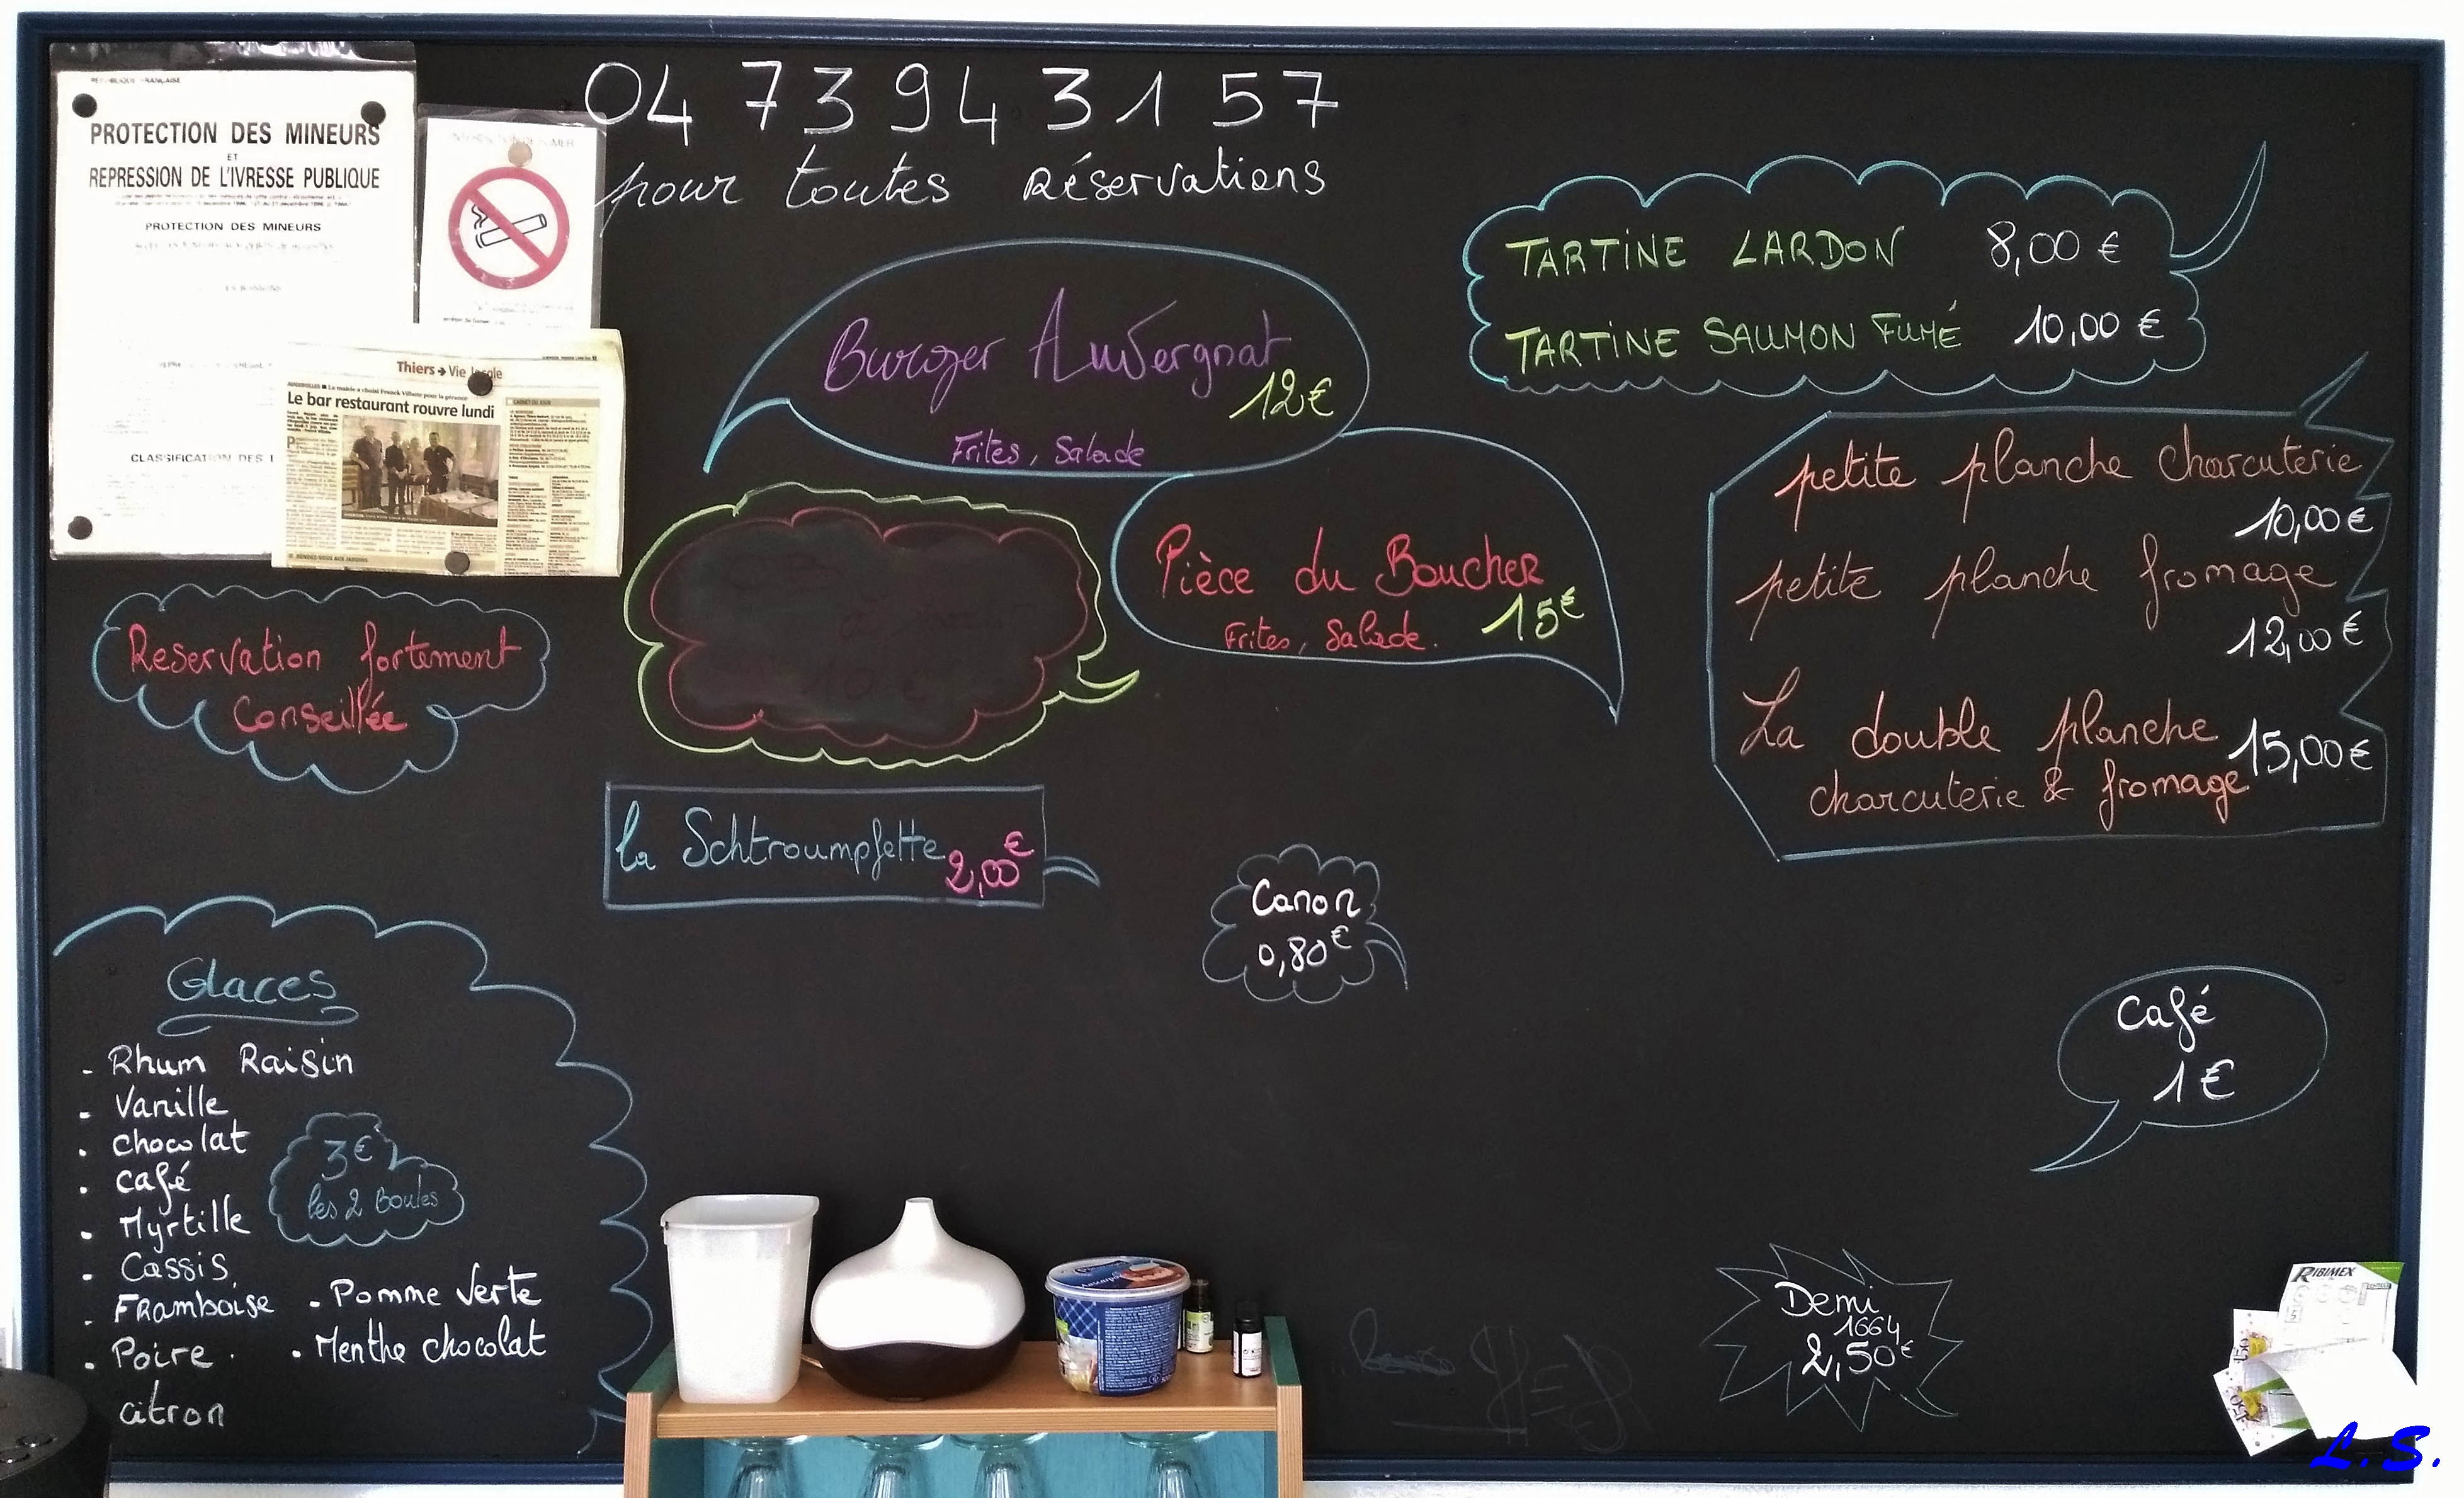 RÉPUBLIQUE FRANÇAISE
PROTECTION DES MINEURS
ET
REPRESSION DE L'IVRESSE PUBLIQUE
PROTECTION DES MINEURS
CLASSIFICATION DES
Thiers → Vie locale
AUGEROLLES ■ La mairie a choisi Franck Villatte pour la gérance
Le bar restaurant rouvre lundi
CARNET DU JOUR
RENDEZ-VOUS AUX JARDINS
04 73 94 31 57
pour toutes Réservations
Burger Auvergnat
12€
Frites, Salade
TARTINE LARDON 8,00 €
TARTINE SAUMON FUMÉ 10,00 €
Pièce du Boucher
Frites, Salade. 15€
10 €
petite planche charcuterie
10,00€
petite planche fromage
12,00€
La double planche 15,00€
charcuterie & fromage
Reservation fortement
Conseillée
la Schtroumpfette 2,00€
Canon
0,80€
Café
1€
Glaces
- Rhum Raisin
- Vanille
. chocolat
. café
. Myrtille
. Cassis
. FRamboise
. Poire .
citron
. Pomme Verte
. Menthe chocolat
3€
les 2 Boules
Demi
1664
2,50€
RIBIMEX
L.S.